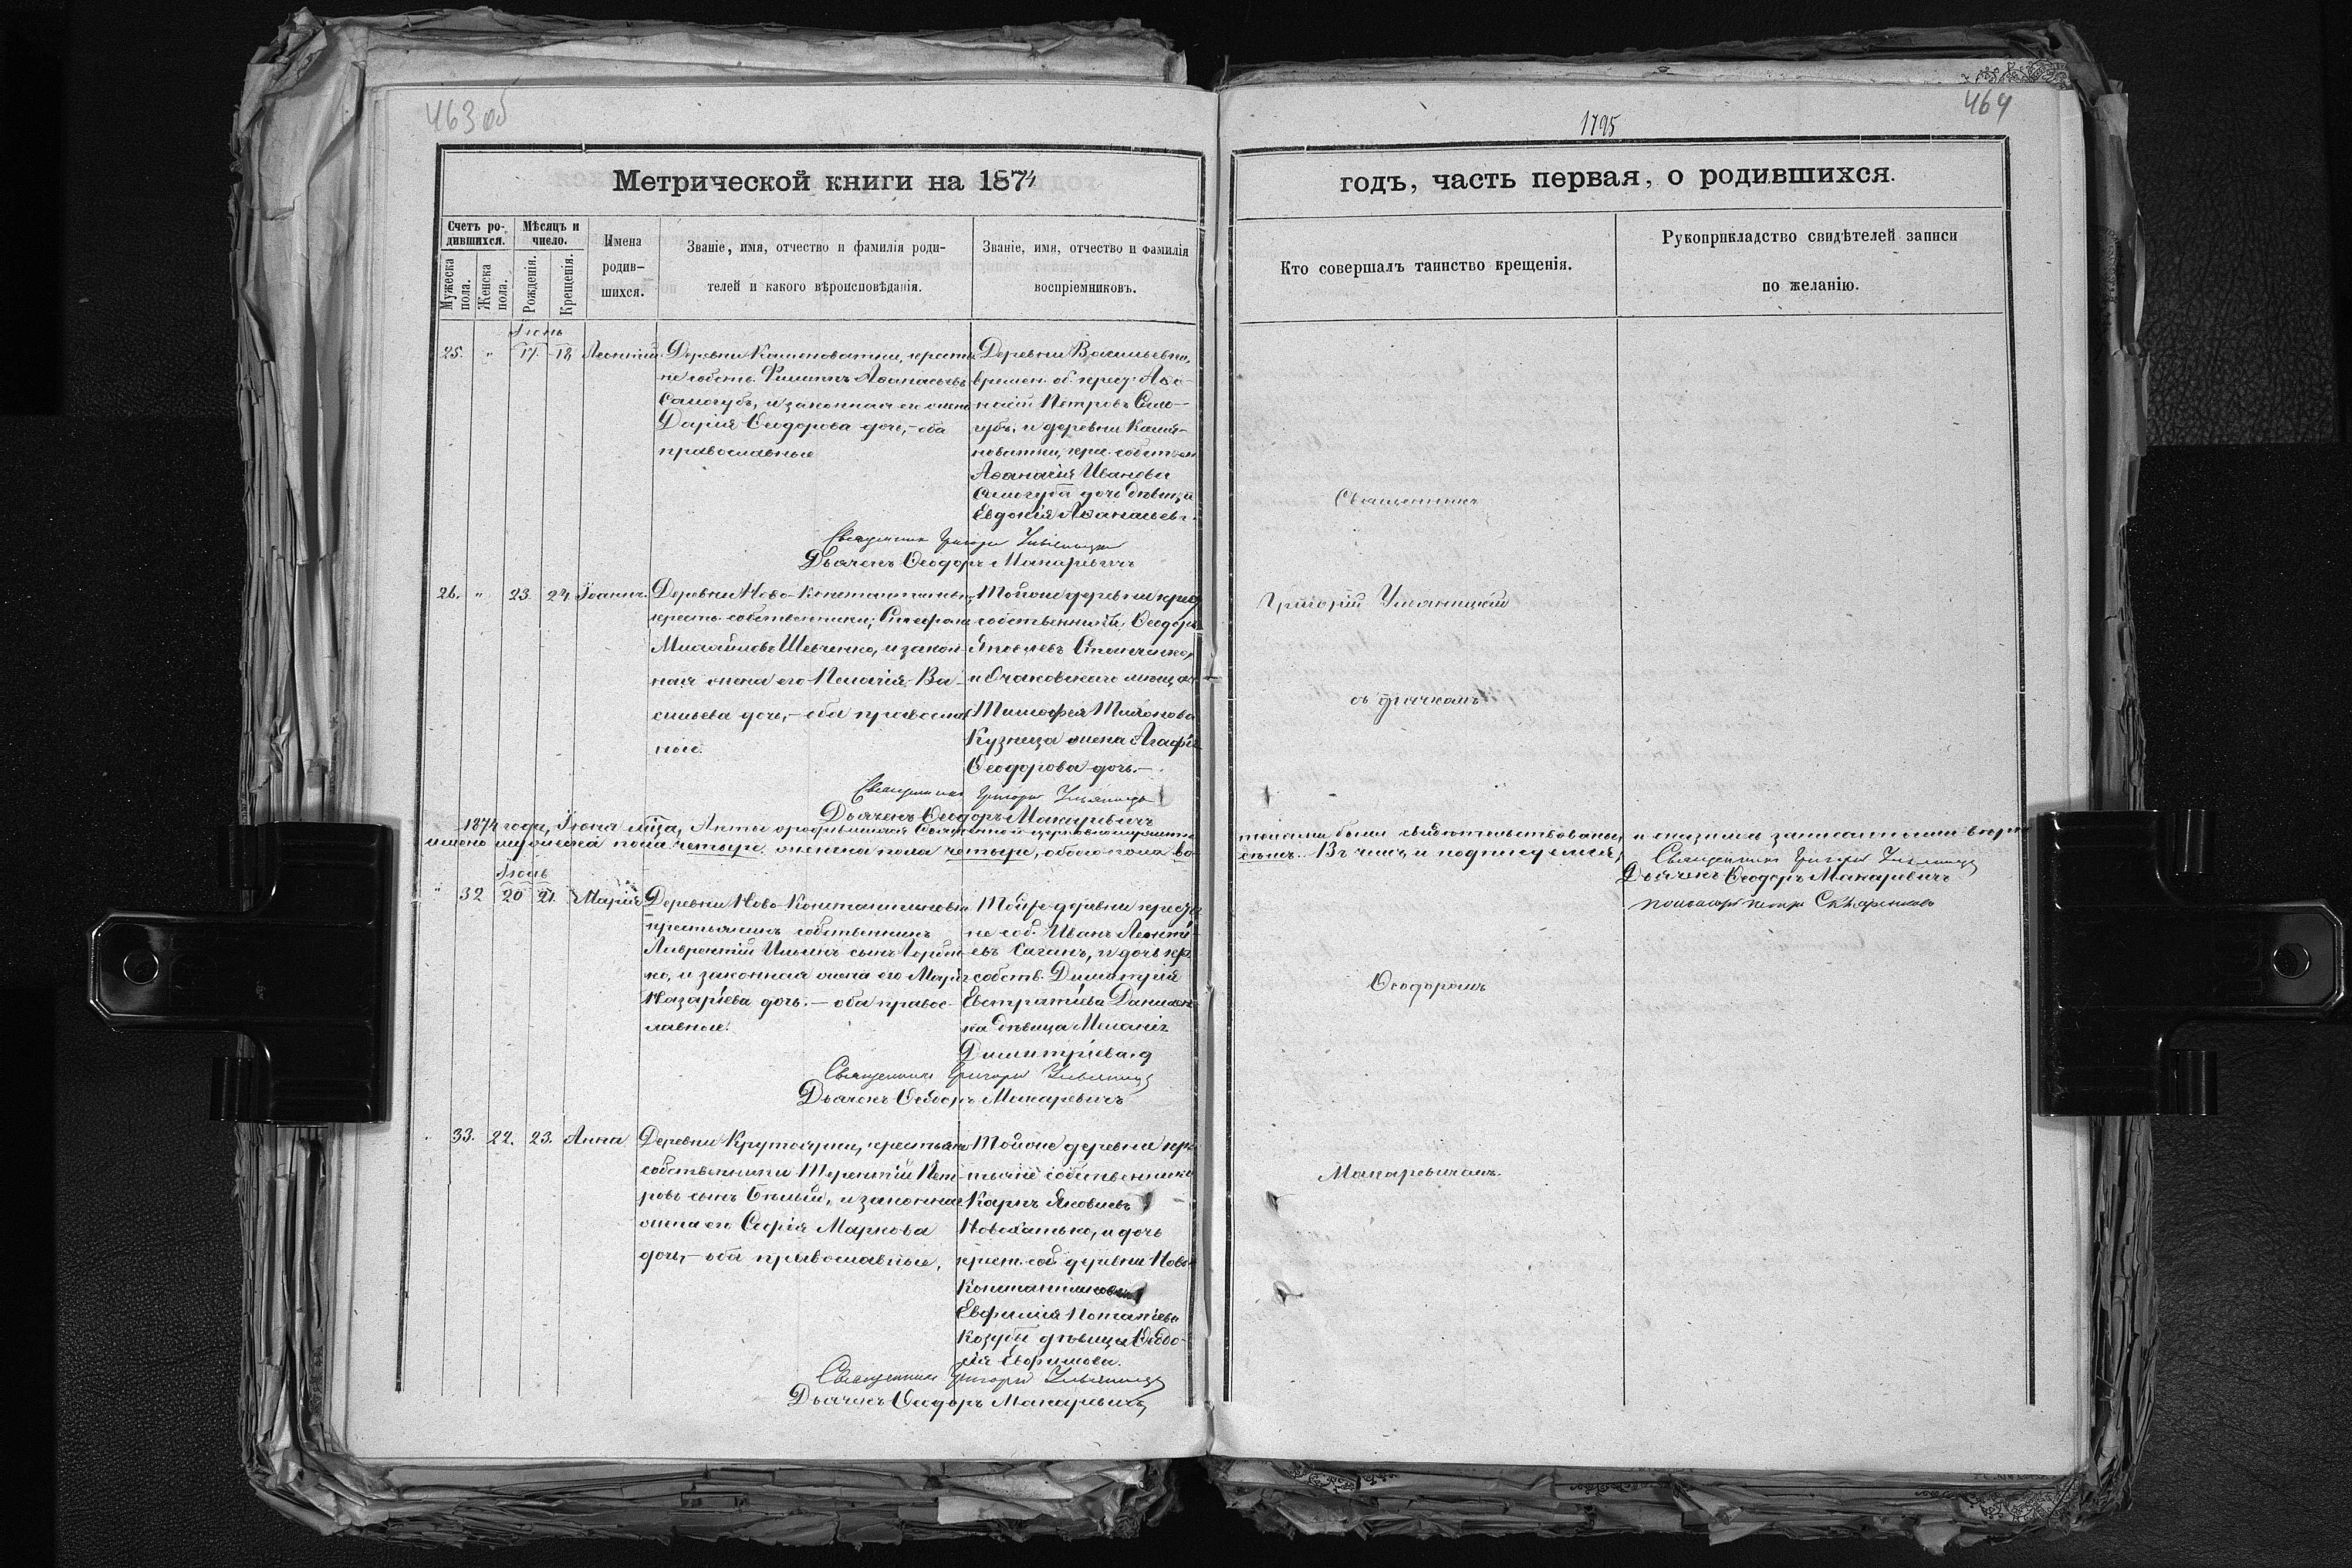 463 об
Метрической книги на 1874
Счетъ ро-
дившихся.
Мѣсяцъ и
число.
Мужеска
пола.
Женска
пола.
Рожденія.
Крещенія.
Имена
родив-
шихся.
Званіе, имя, отчество и фамилія роди-
телей и какого вѣроисповѣданія.
Званіе, имя, отчество и фамилія
воспріемниковъ.
25. " 17. 18 Леонтій.
Деревни Каменоватки, крестья
не собств. Филиппъ Аѳанасьевъ
Самогубъ, и законная его жена
Дарія Ѳеодорова дочь, - оба
православные
Деревни Васильевки,
времен. об. крест. Аѳа-
насій Петровъ Само-
губъ, и деревни Каме-
новатки, крес. собствен
Аѳанасія Иванова
Самогуба дочь дѣвица
Евдокія Аѳанасьев.
Священникъ Григорій
Дьячекъ Ѳеодоръ Макаревичъ
26. " 23. 24. Іоаннъ.
Деревни Ново-Константиновки,
крест. собственники; Стефанъ
Михайловъ Шевченко, и закон-
ная жена его Пелагія Ва-
сильева дочь, - оба православ
ные.
Тойже деревни крес
собственникъ Ѳеодоръ
Яковлевъ
и Очаковскаго мѣщан
Тимофея
Кузнеца жена Агафія
Ѳеодорова дочь. -
Священникъ Григорій
Дьячекъ Ѳеодоръ Макаревичъ
1874 года, Іюня м-ца, Акты о родившихся Священно и церковнослужите
мужеска пола четыре, женска пола четыре, обоего пола во
Іюнь
" 32 20 21. Марія
Деревни Ново-Константиновки
крестьянинъ собственникъ
Лаврентій Ильинъ сынъ
ко, и законная жена его Марія
Назаріева дочь. - оба правос-
лавные.
Тойже деревни крестья
не соб. Иванъ Леонті-
евъ Саганъ, и дочь кр.
собств. Димитрія
Евстратіева
ка дѣвица Меланія
Димитріева. д
Священникъ Григорій
Дьячекъ Ѳеодоръ Макаревичъ
" 33. 22. 23. Анна
Деревни Крутоярки, крестьяне
собственники Терентій Пет-
ровъ сынъ Бѣлый, и законная
жена его Софія Маркова
дочь, - оба православные,
Тойже деревни кре
стьяне собственники
Карпъ Яковлевъ
и дочь
крест. соб. деревни Ново
Константиновки
Евфимія Потапіева
Козуба дѣвица Ѳеодо-
сія Евфимова.
Священникъ Григорій
Дьячекъ Ѳеодоръ Макаревичъ
464
1795
годъ, часть первая, о родившихся.
Кто совершалъ таинство крещенія.
Рукоприкладство свидѣтелей записи
по желанію.
Священникъ
Григорій Ульяницкій
съ дьячкомъ
лями были свидѣтельствованы, и оказались записанными вѣрн
семь. Въ чемъ и подписуемся,
Священникъ Григорій
Дьячекъ Ѳеодоръ Макаревичъ
Ѳеодоромъ
Макаревичемъ.